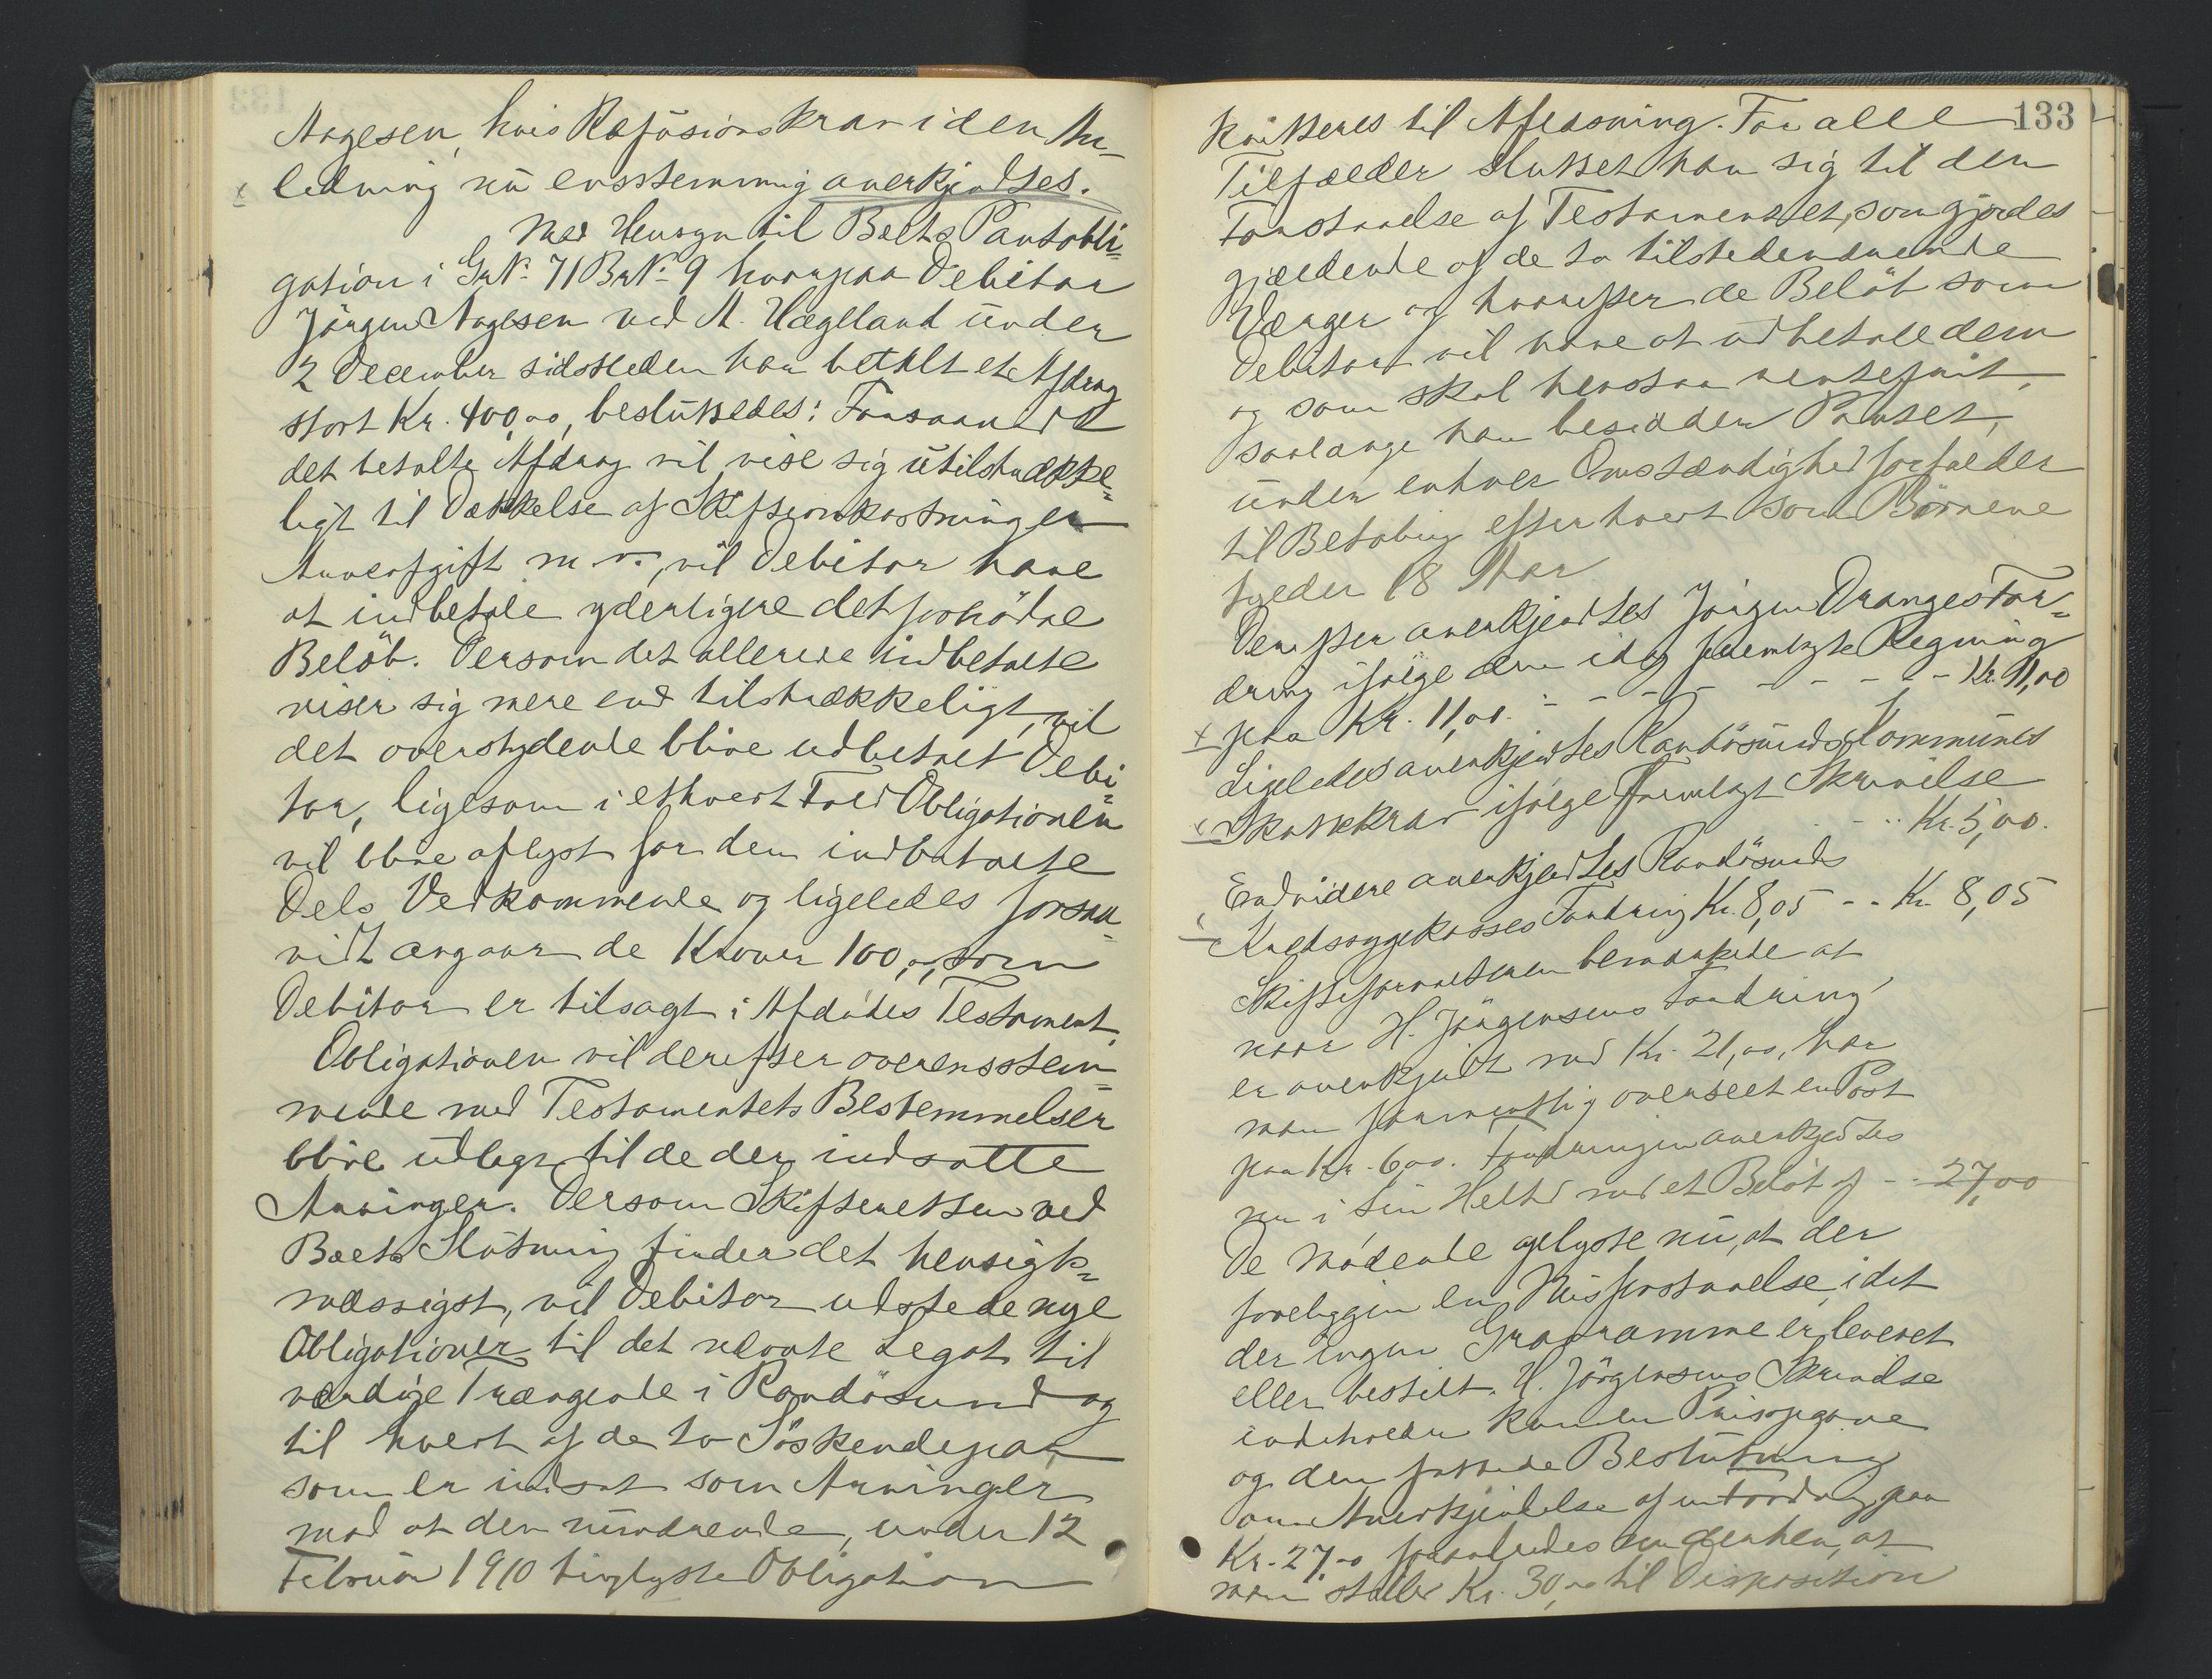 Aagesen, hvis Refusionskrav i den An-
x ledning nu ensstemmig anerkjendtes.
Med Hensyn til Boets Pantobli-
gation i GNr. 71 BrNr. 9 hvorpaa Debitor
Jörgen Aagesen ved A. Hægeland under
2 December sidstleden har betalt et Afdrag
stort Kr. 400,00, besluttedes: Forsaavidt
det betalte Afdrag vil vise sig utilstrække-
ligt til Dækkelse af Skifteomkostninger
Arveafgift m.v., vil Debitor have
at indbetale yderligere det fornödne
Belöb. Dersom det allerede indbetalte
viser sig mere end tilstrækkeligt, vil
det overskydende blive udbetalt Debi-
tor, ligesom i ethvert Fald Obligationen
vil blive aflyst for den indbetalte
Dels Vedkommende og ligeledes forsaa-
vidt angaar de Kroner 100,00, som
Debitor er tilsagt i Afdödes Testament.
Obligationen vil derefter overensstem-
mende med Testamentets Bestemmelser
blive udlagt til de der indsatte
Arvinger. Dersom Skifteretten ved
Boets Slutning finder det hensigts-
mæssigst, vil Debitor udstede nye
Obligationer til det nævnte Legat til
værdige Trængende i Randösund og
til hvert af de to Söskendepar
som er indsat som Arvinger
mod at den nuværende, under 12
Februar 1910 tinglyste Obligation
133
kvitteres til Aflæsning. For alle
Tilfælder sluttet han sig til den
Forstaaelse af Testamentet, som gjordes
gjældende af de to tilstedeværende
Værger og hvorefter de Belöb som
Debitor vil have at udbetale dem
og som skal henstaa rentefrit,
saalænge han besidder Pantet,
under enhver Omstændighed forfalder
til Betaling efterhvert som Börnene
fylder 18 Aar
Derefter anerkjendtes Jörgen Dranges For-
dring ifölge den idag fremlagte Regning
x paa Kr. 11,00. - - - - - - - - Kr. 11,00
Ligeledes anerkjendtes Randösunds Kommunes
x Skattekrav ifölge fremlagt Skrivelse
- - Kr. 5,00.
Endvidere anerkjendtes Randösunds
x Kredssygekasses Fordring Kr. 8,05 - - Kr. 8,05
Skifteforvalteren bemærkede at
naar H. Jörgensens Fordring
er anerkjendt med Kr. 21,00, har
man formentlig overseet en Post
paa Kr. 6,00. Fordringen anerkjendtes
nu i sin Helhed med et Belöb af - - 27,00
De mödende oplyste nu, at der
foreligger en Misforstaaelse, idet
der ingen Gravramme er leveret
eller bestilt. H. Jörgensens Skrivelse
indeholder kun en Prisopgave
og den fattede Beslutning
om Anerkjendelse af en Fordring paa
Kr. 27,00 forandredes derhen, at
man stiller Kr. 30,00 til Disposition